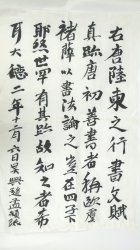 右唐陸柬之行書文賦
真跡唐初善書者稱歐虞
褚薛以書法論之豈在四子下
耶然世罕有其跡故知之者希
耳大德二年十二月六日吳興趙孟頫